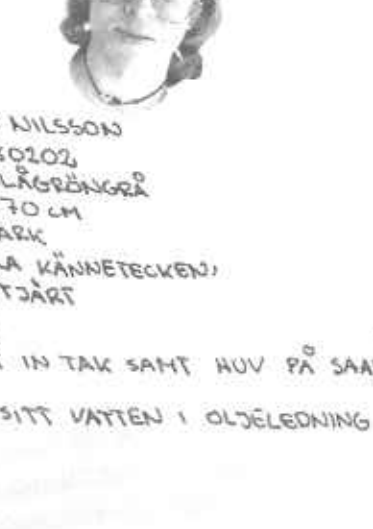 NILSSON
50202
LÅGRÖNGRÅ
70 CM
ARK
LA KÄNNETECKEN,
TJÄRT
IN TAK SAMT HUV PÅ SAA
SITT VATTEN I OLJELEDNING